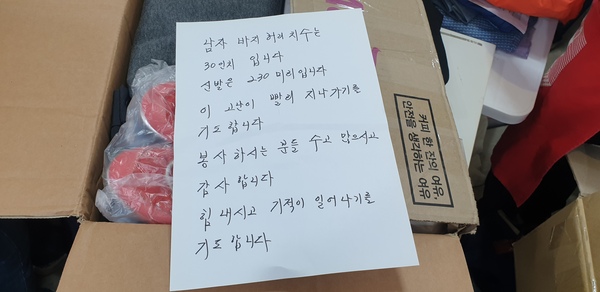 남자 바지 허리 치수는
30인치 입니다
신발은 230 미리입니다
이 고난이 빨리 지나가기를
기도 합니다
봉사 하시는 분들 수고 많으시고
감사 합니다
힘 내시고 기적이 일어나기를
기도 합니다
커피 한 잔의 여유,
안전을 생각하는 여유